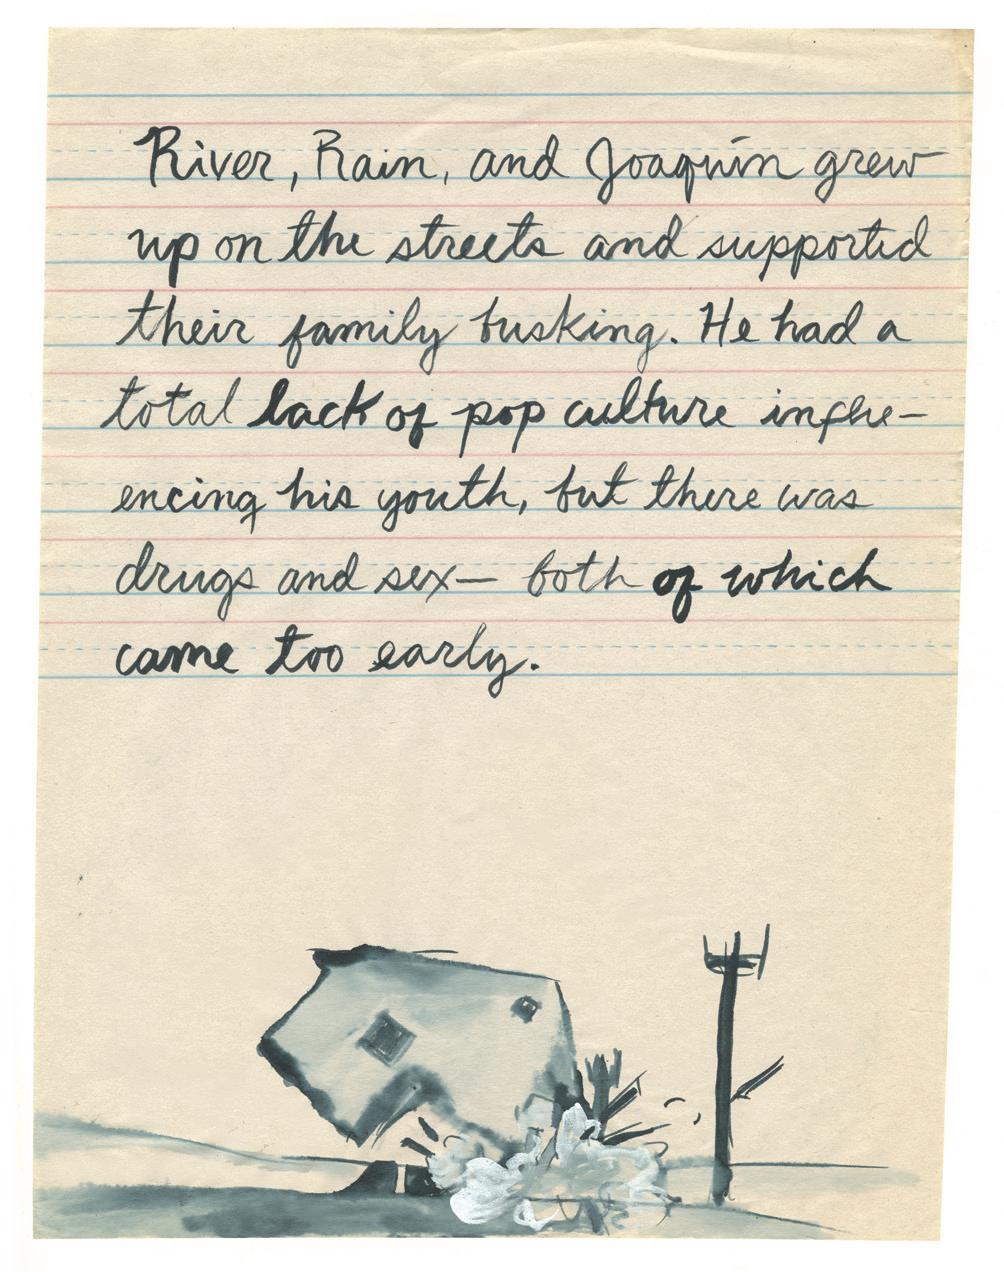 River, Rain, and Joaquín grew
up on the streets and supported
their family busking. He had a
total lack of pop culture influ-
encing his youth, but there was
drugs and sex— both of which
came too early.